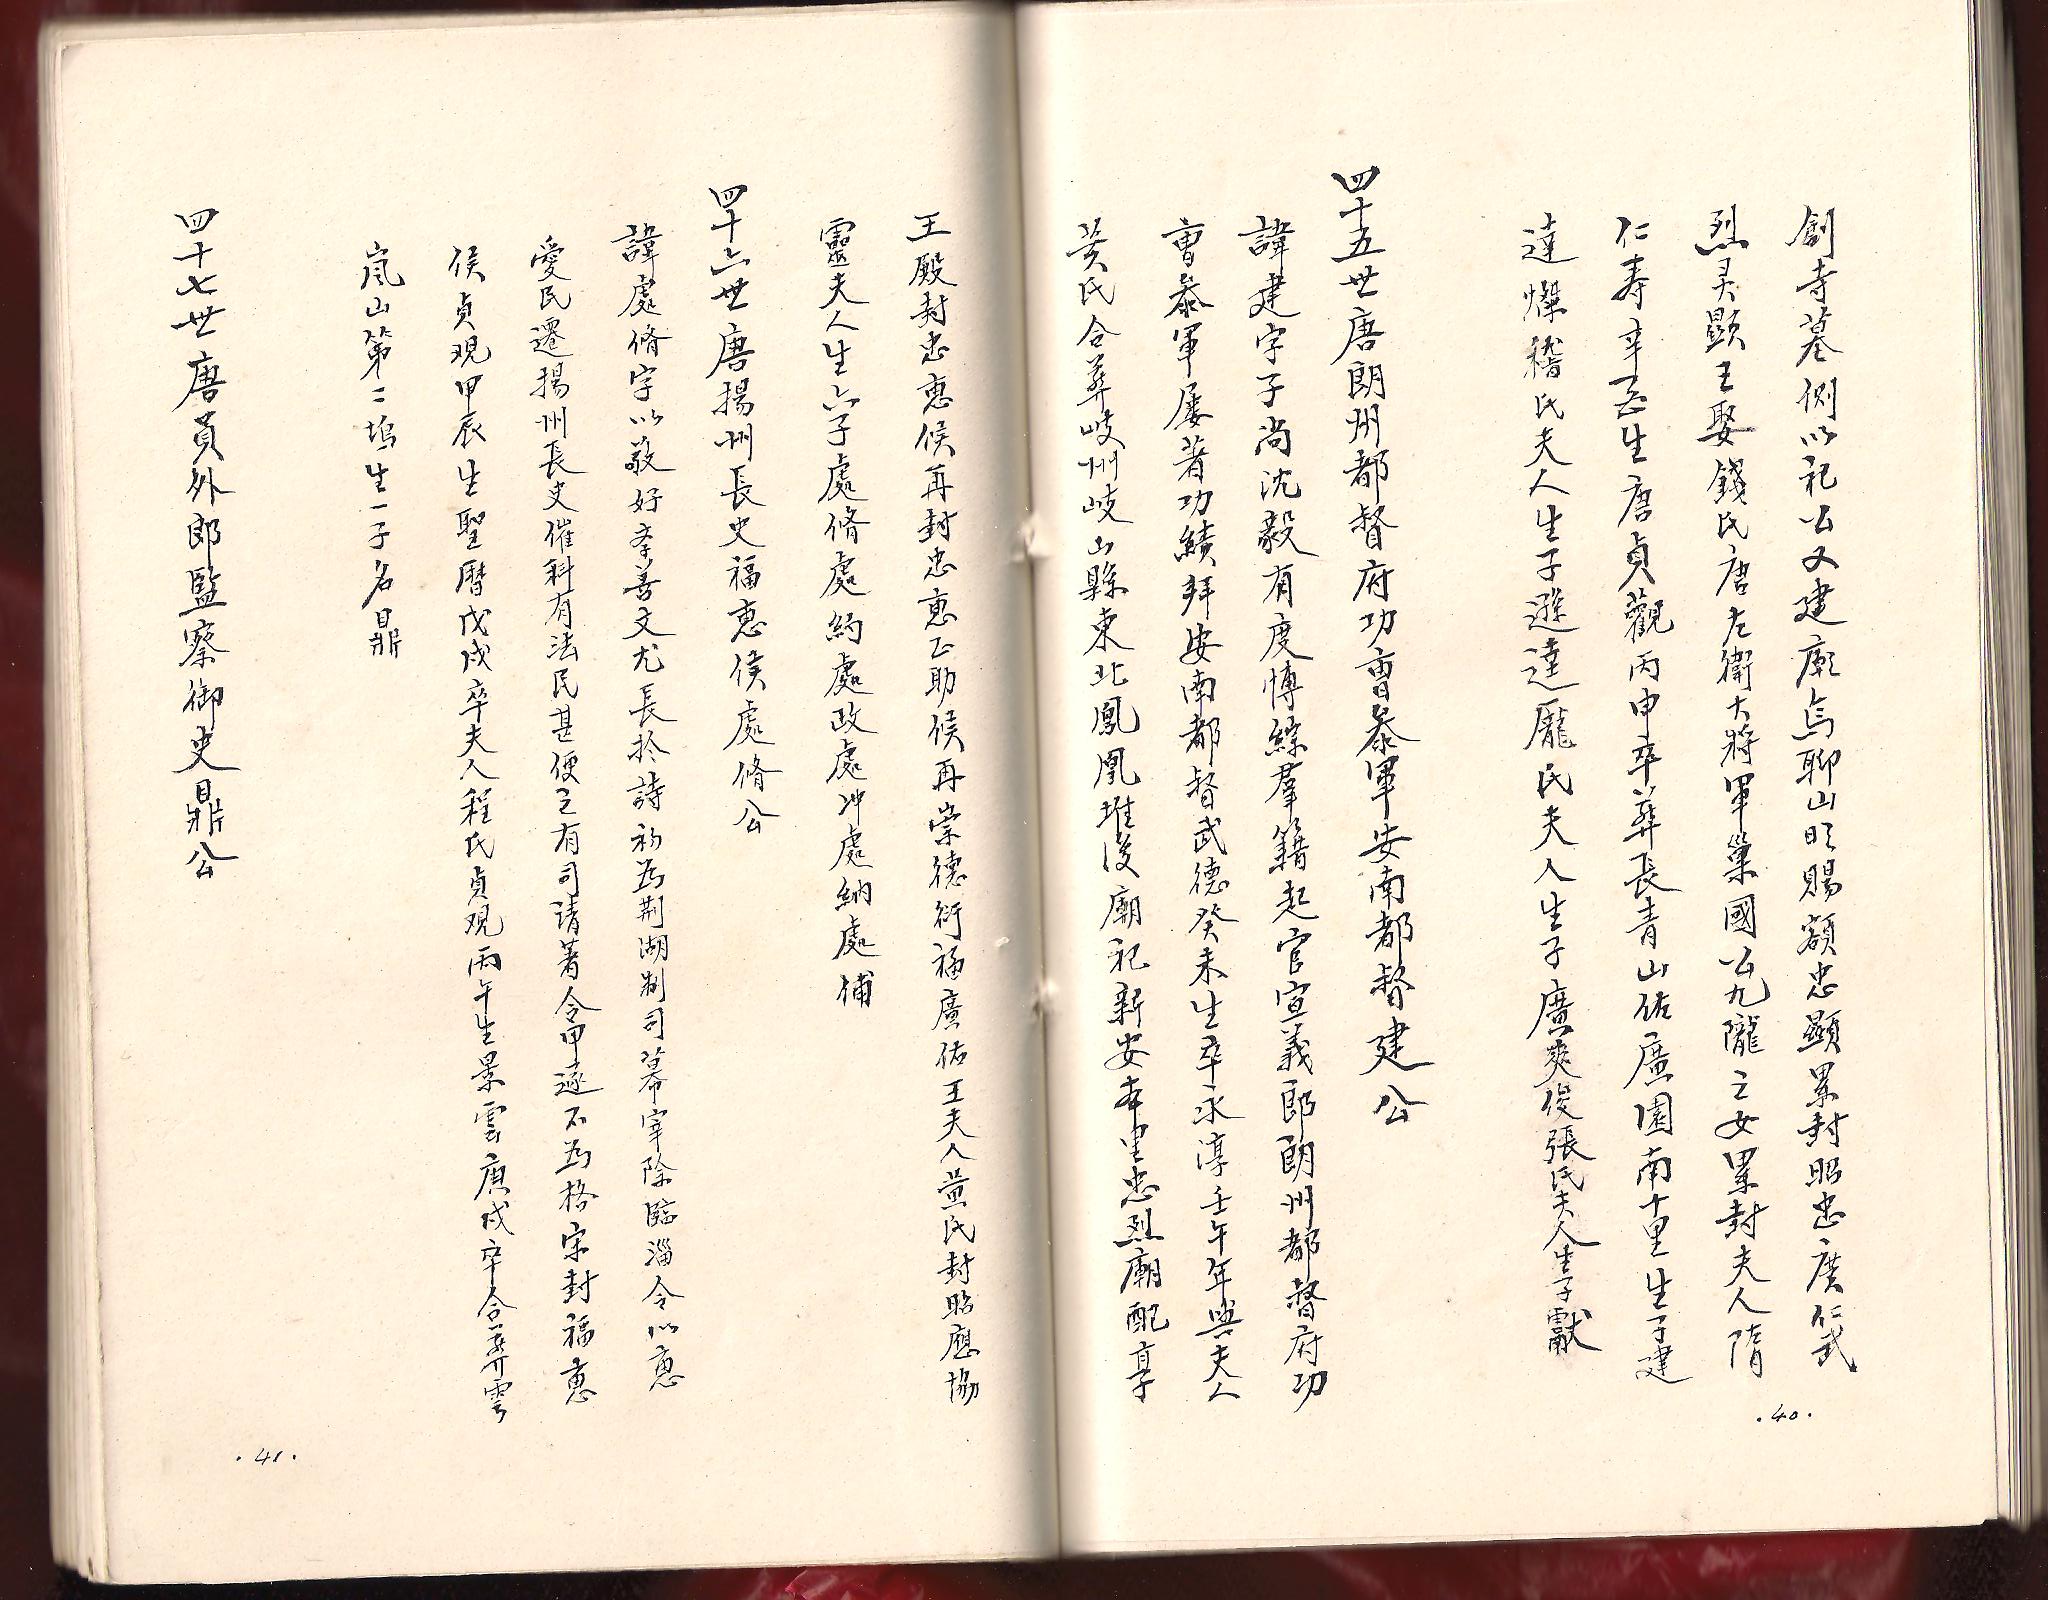 創寺墓側以祀公又建廟烏聊山賜額忠顯累封昭忠廣仁武
烈灵顯王娶錢氏唐左衛大將軍巢國公九隴之女累封夫人隋
仁寿辛酉生唐貞觀丙申卒葬長青山佑廣園南十里生子建
達爍稽氏夫人生子遜逵龐氏夫人生子廣爽俊張氏夫人生子獻
四十五世唐朗州都督府功曹叅軍安南都督建公
諱建字子尚沈毅有度博綜羣籍起官宣義郎朗州都督府功
曹叅軍屡著功績拜安南都督武德癸未生卒永淳壬午年與夫人
黄氏合葬岐州岐山縣東北鳳凰堆後廟祀新安本里忠烈廟配享
·40·
王殿封忠惠侯再封忠惠正助侯再崇德衍福廣佑王夫人黄氏封昭應協
靈夫人生六子處脩處約處政處冲處納處補
四十六世唐揚州長史福惠侯處脩公
諱處脩字以敬好孝善文尤長於詩初為荆湖制司幕宰除臨淄令以惠
愛民遷揚州長史催科有法民甚便之有司请著令甲遂不為格宋封福惠
侯貞观甲辰生聖曆戊戌卒夫人程氏貞观丙午生景雲庚戌卒合葬雲
嵐山第二塢生一子名鼎
四十七世唐員外郎監察御史鼎公
·41·